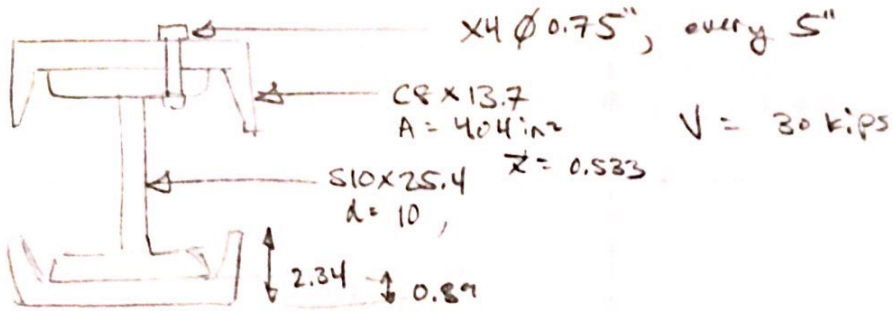 x4 ∅ 0.75", every 5"
C8 × 13.7
A = 4.04 in²
V = 30 kips
x̄ = 0.533
S10×25.4
d = 10,
2.34
0.89